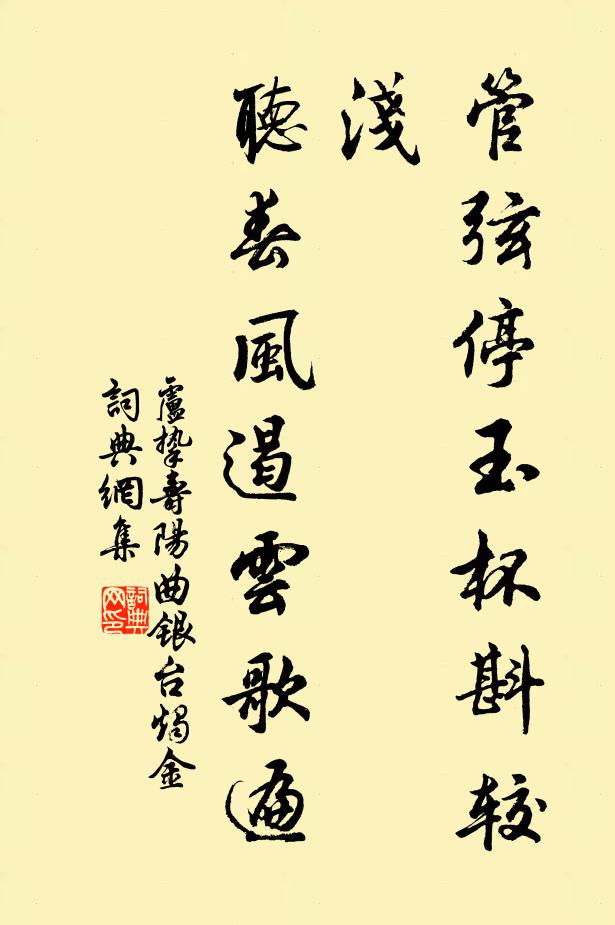 管弦停玉杯斟較
淺
聽春風遏雲歌遍
盧摯壽陽曲銀台燭金
詞典網集
詞典
网印